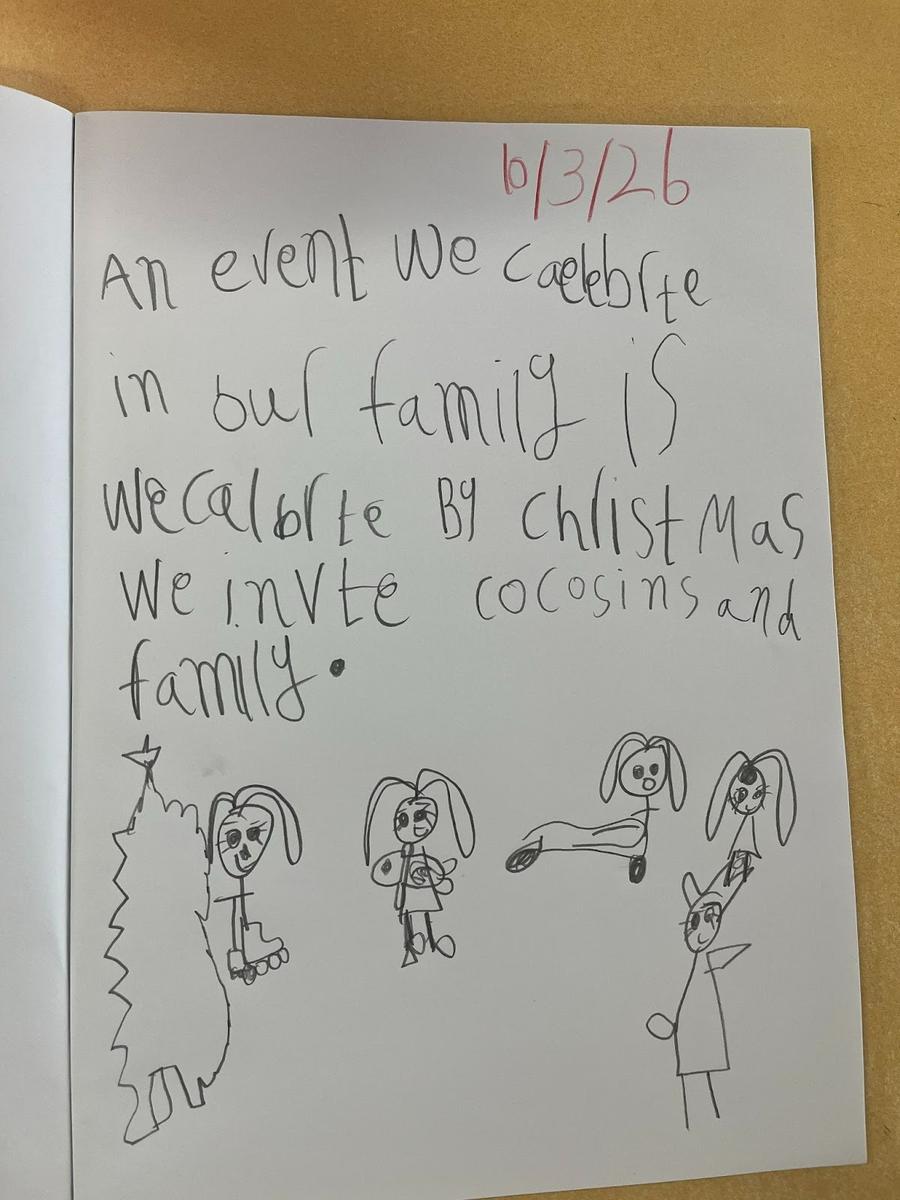 10/3/26
An event we caelebrte
in our family is
we calbrte By christmas
we invte cocosins and
family.